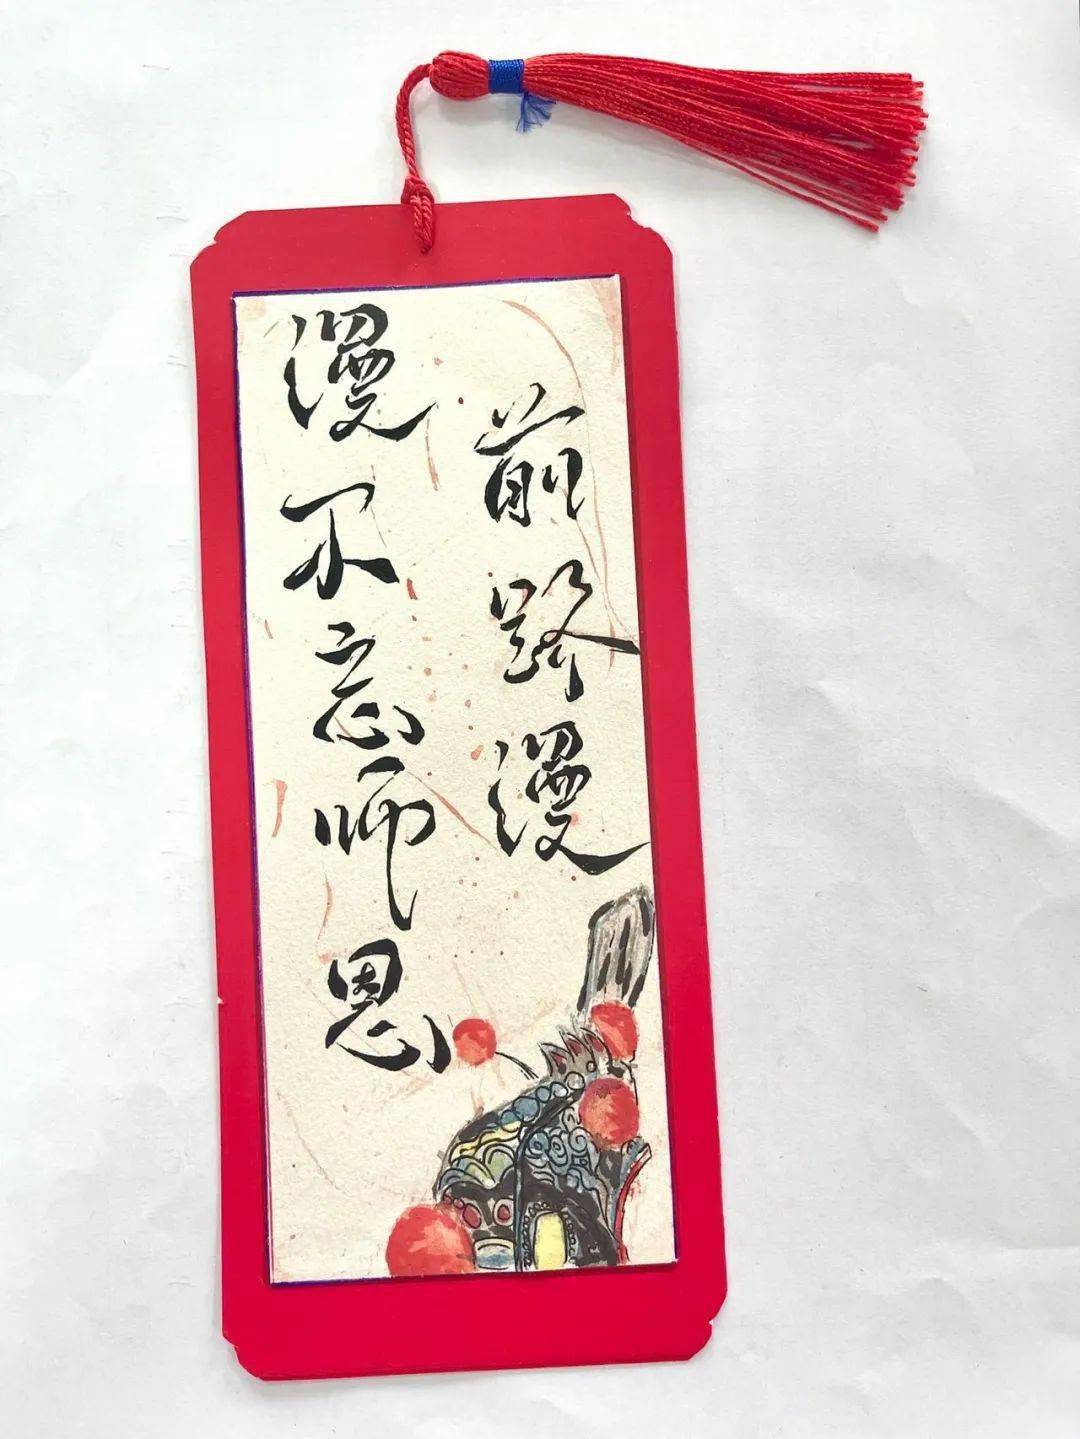 前路漫
漫不忘师恩